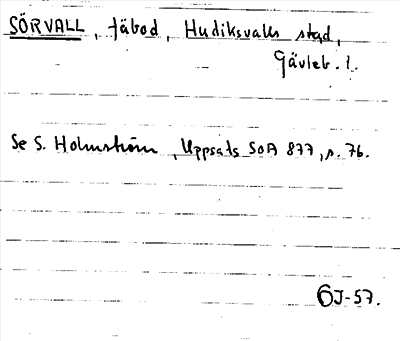 SÖRVALL, fäbod, Hudiksvalls stad,
Gävleb. l.
Se S. Holmström, Uppsats SOA 877, s. 76.
GJ-57.